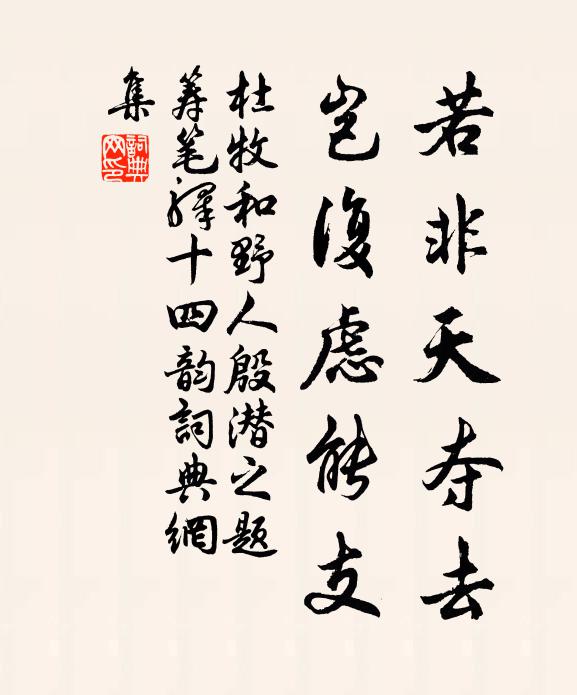 若非天夺去
岂復虑能支
杜牧和野人殷潜之题
筹笔驿十四韵詞典網
集
詞典
网印